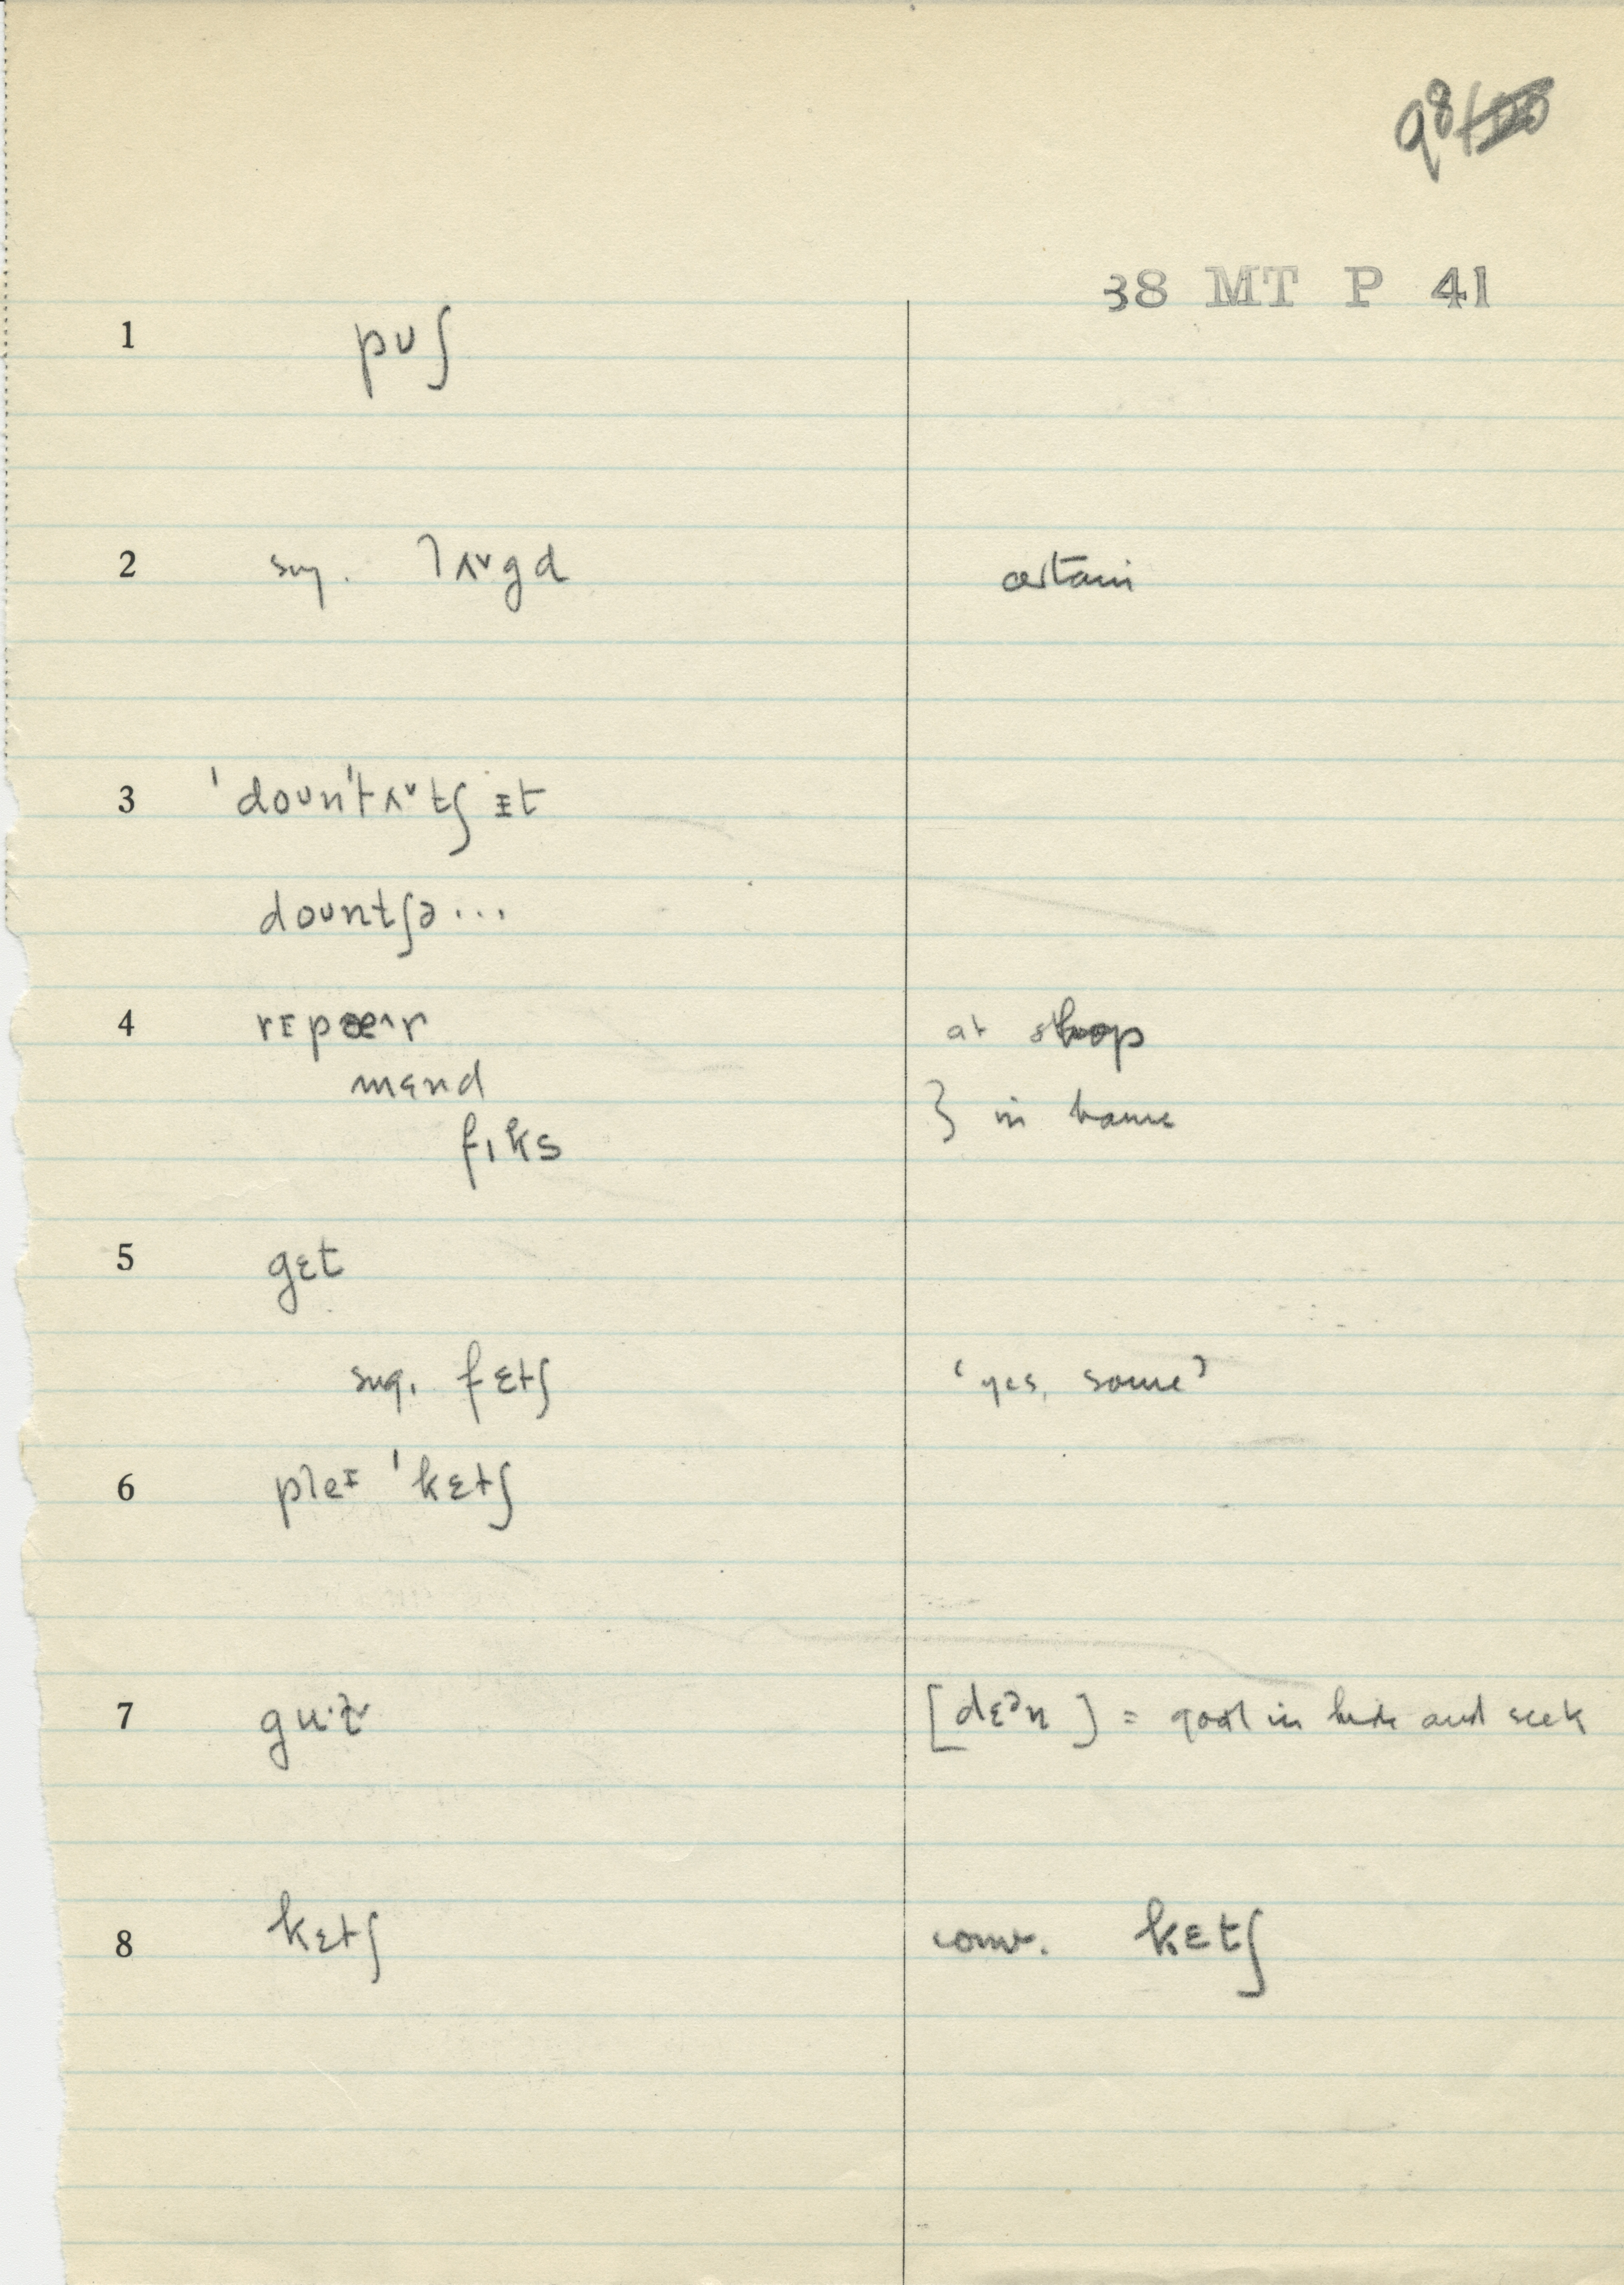 98
38 MT P 41
1 pʊʃ
2 sug. lʌᵛgd certain
3 ˈdoʊnˈtʌᵛtʃ ɪt
doʊntʃə...
4 rɪpæ^r at shop
mɛnd
fɪks } in home
5 gɛt
sug. fɛtʃ 'yes, some'
6 pleᶦ ˈkɛtʃ
7 [dɛᵊn] = goal in hide and seek
8 kɛtʃ conv. kɛtʃ